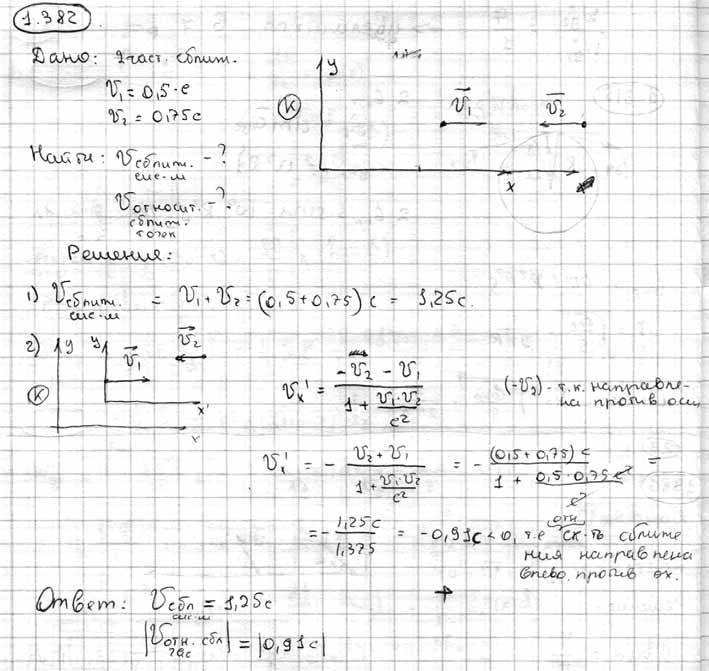 1.382
Дано: 2 част. сближ.
V₁ = 0,5·c
V₂ = 0,75c
Найти: V сближ. сис-м - ?
V относит. сближ. - ?
Решение:
y
K
V₁
V₂
x
1) V сближ. сис-м = V₁ + V₂ = (0,5+0,75)c = 1,25c.
2) y y V₁ V₂
K
x'
x
Vx' = (-V₂ - V₁) / (1 + V₁·V₂/c²)
(-V₂) - т.к. направле-
на против оси
Vx' = - (V₂ + V₁) / (1 + V₁·V₂/c²) = - (0,5+0,75)c / (1 + 0,5·0,75c²/c²) =
= - 1,25c / 1,375 = -0,91c < 0, т.е отн ск-ть сближе
ния направлена
влево, против ox.
Ответ: V сбл сис-м = 1,25c
|V отн. сбл| = |0,91c|